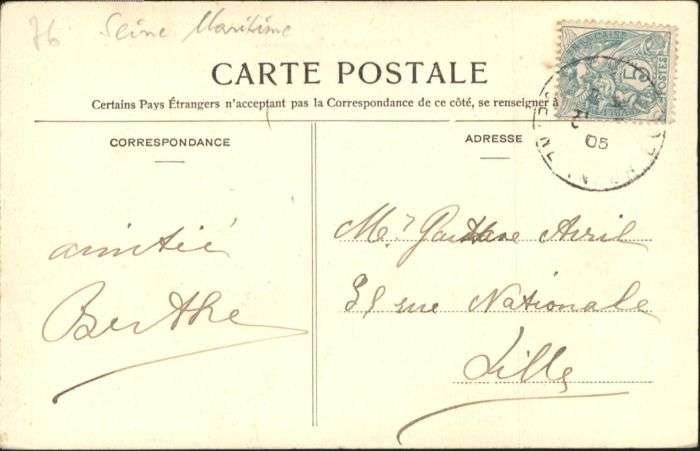 76 Seine Maritime
CARTE POSTALE
Certains Pays Étrangers n'acceptant pas la Correspondance de ce côté, se renseigner à
CORRESPONDANCE
ADRESSE
amitié
Berthe
Mr Gustave Avril
35 rue Nationale
Lille
05